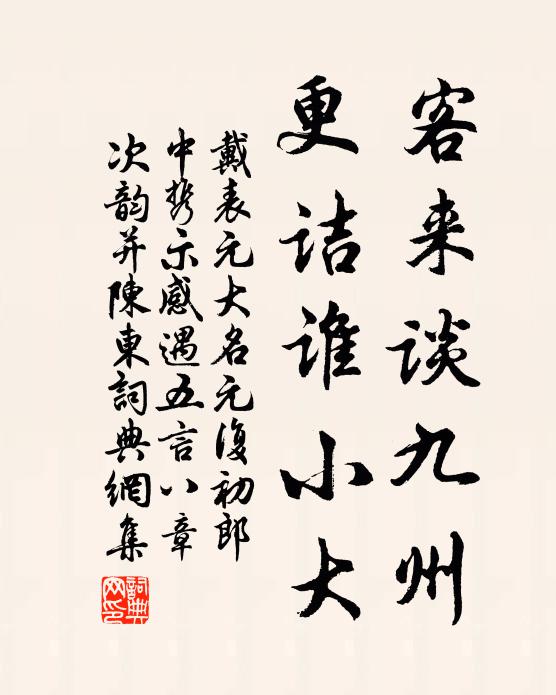 客来談九州
更詰誰小大
戴表元大名元復初郎
中携示感遇五言八章
次韵并陳東詞典網集
詞典
网印